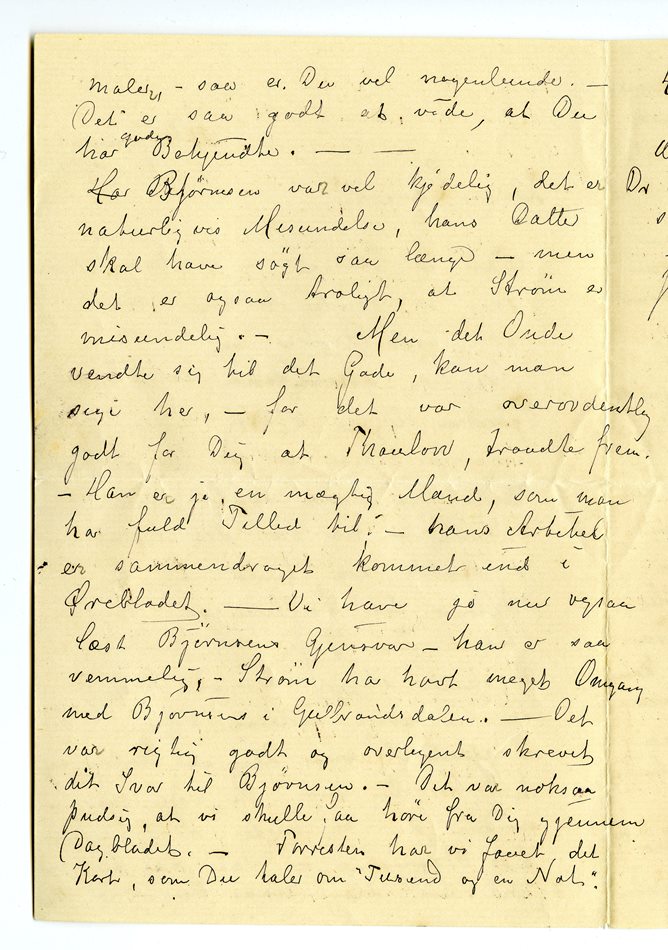 maler, - saa er Du vel nogenlunde. -
Det er saa godt at vide, at Du
har gode Bekjendte. - -
Har Bjørnsen var vel kjedelig, det er
naturligvis Misundelse, hans Datte
skal have søgt saa længe - men
det er ogsaa troligt, at Strøm er
misundelig. - Men det Onde
vendte sig til det Gode, kan man
sige her, - for det var overordentlig
godt for Dig at Thaulow traadte frem.
- Han er jo en mægtig Mand, som man
har fuld Tillid til. - hans Artikel
er sammendraget kommet ind i
Ørebladet. - Vi have jo nu ogsaa
læst Bjørnsens Gjensvar - han er saa
vemmelig, - Strøm har havt meget Omgang
med Bjørnsens i Gulbrandsdalen. - Det
var rigtig godt og overlegent skrevet
dit Svar til Bjørnsen. - Det var noksaa
pudsig, at vi skulle faa høre fra Dig gjennem
Dagbladet. - Forresten har vi faaet det
Kort, som Du taler om "Tusend og en Nat".
Dr